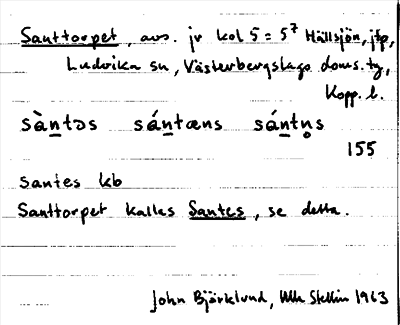 Santtorpet, avs. jr kol 5 = 5⁷ Hällsjön, jtp,
Ludvika sn, Västerbergslags doms. tg,
Kopp. l.
sàntəs sántæns sántn̥s
155
santes kb
Santtorpet kallas Santes, se detta.
John Björklund, Ulla Stellin 1963